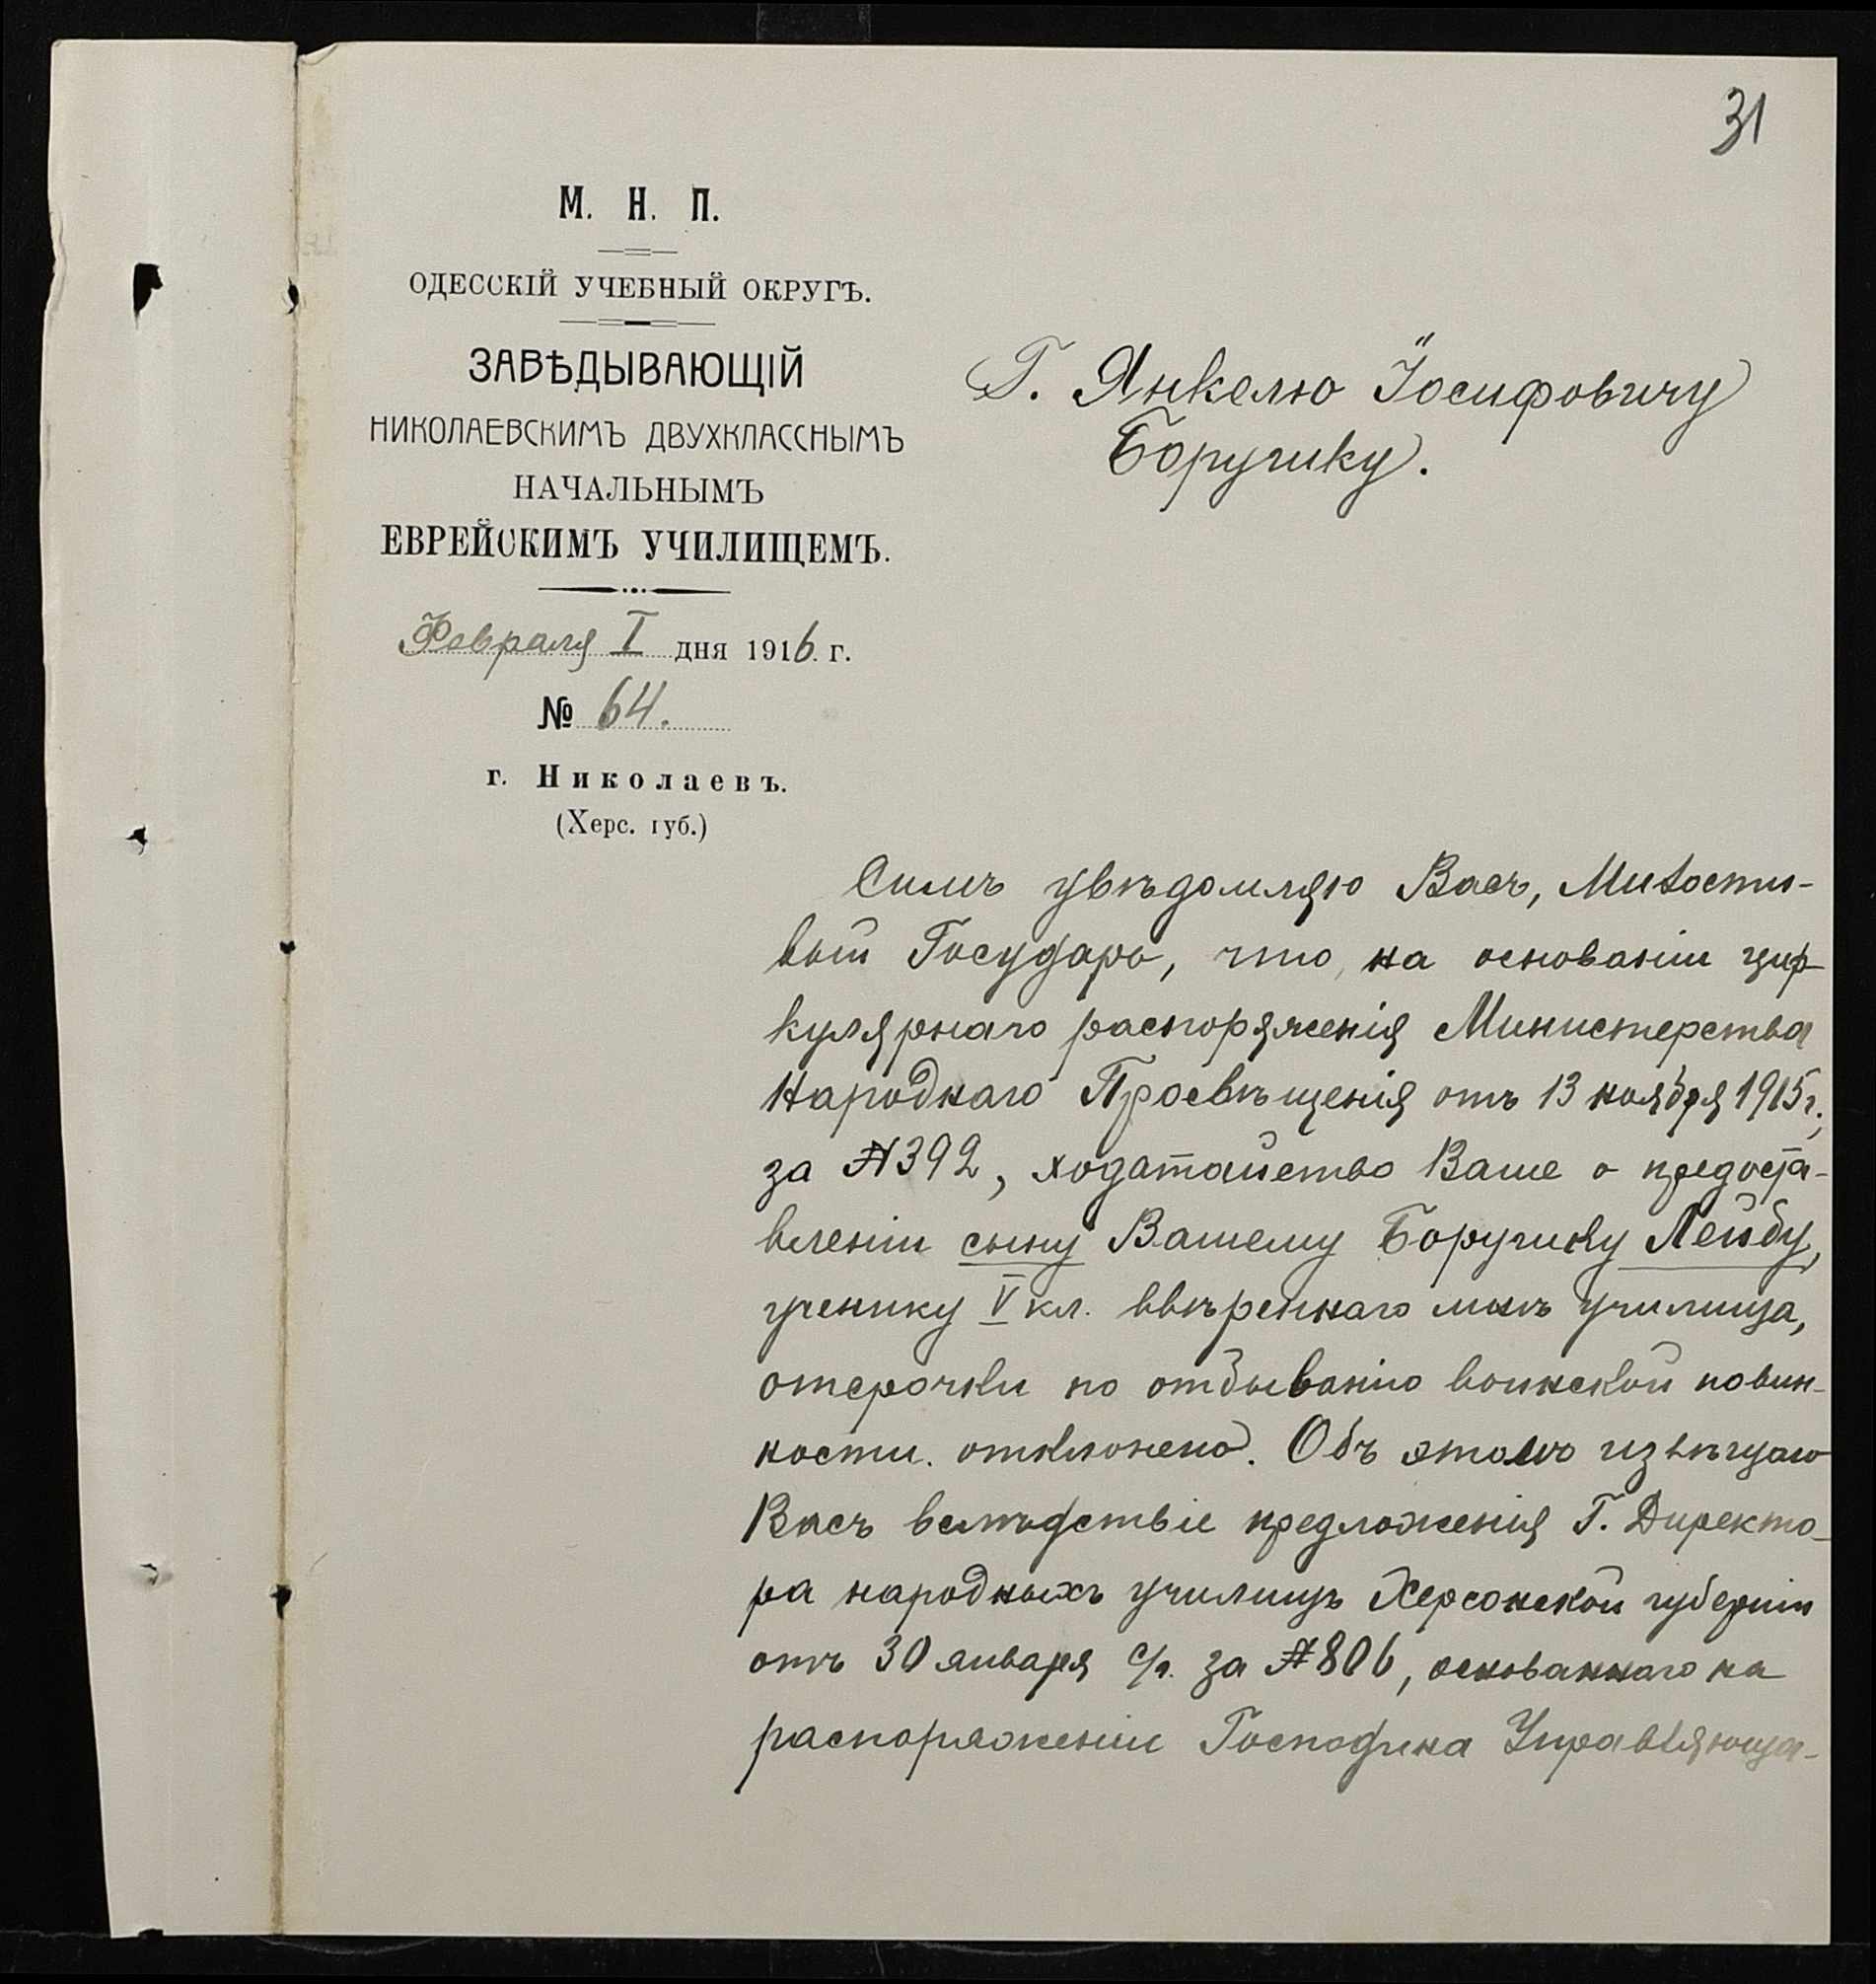 31
М. Н. П.
ОДЕССКІЙ УЧЕБНЫЙ ОКРУГЪ.
ЗАВѢДЫВАЮЩІЙ
НИКОЛАЕВСКИМЪ ДВУХКЛАССНЫМЪ
НАЧАЛЬНЫМЪ
ЕВРЕЙСКИМЪ УЧИЛИЩЕМЪ.
Февраля I дня 1916. г.
№ 64.
г. Николаевъ.
(Херс. губ.)
Г. Янкелю Іосифовичу
Боручику.
Симъ увѣдомляю Васъ, Милости-
вый Государь, что, на основаніи цир-
кулярнаго распоряженія Министерства
Народнаго Просвѣщенія отъ 13 ноября 1915 г.,
за № 392, ходатайство Ваше о предоста-
вленіи сыну Вашему Боручику Лейбу,
ученику V кл. ввѣреннаго мнѣ училища,
отсрочки по отбыванію воинской повин-
ности. отклонено. Объ этомъ извѣщаю
Васъ вслѣдствіе предложенія Г. Директо-
ра народныхъ училищъ Херсонской губерніи
отъ 30 января с/г. за № 806, основаннаго на
распоряженіи Господина Управляюща-